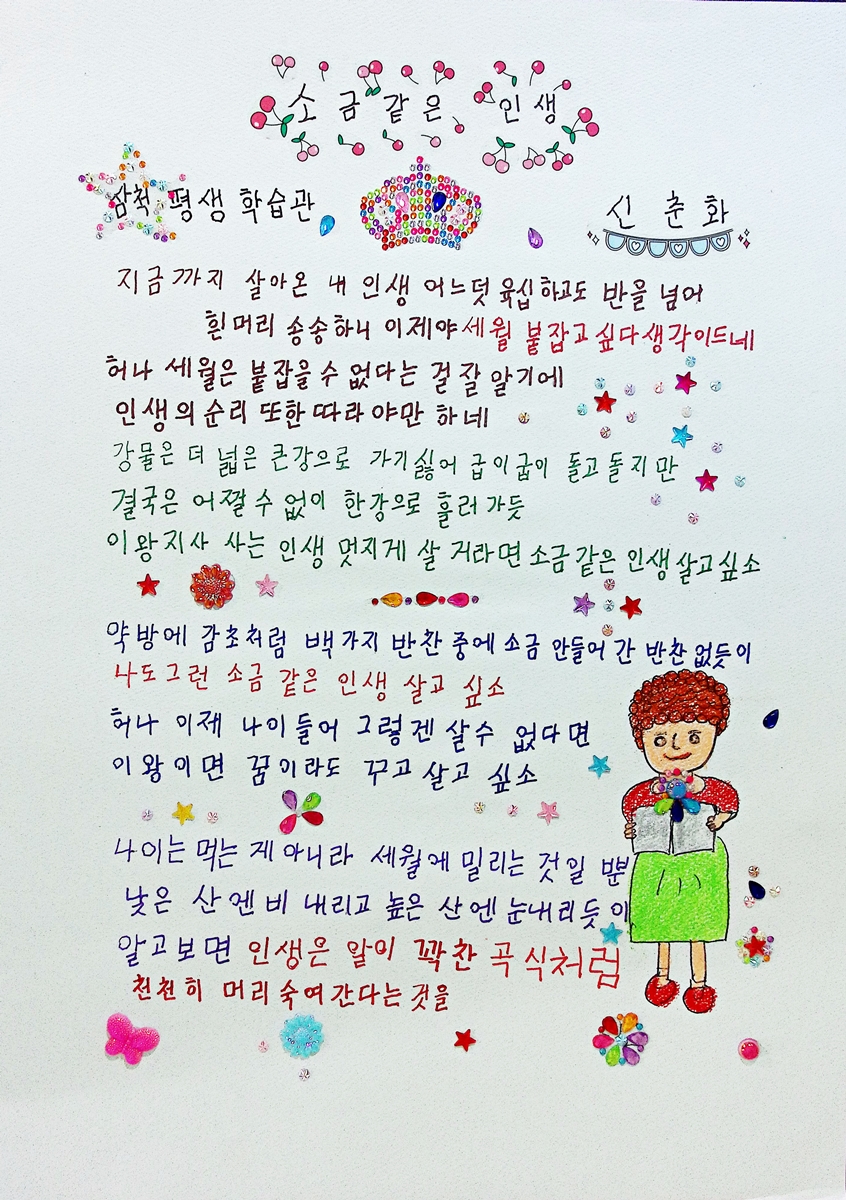 소금같은 인생
삼척 평생 학습관
신춘화
지금까지 살아온 내 인생 어느덧 육십하고도 반을 넘어
흰머리 송송하니 이제야 세월 붙잡고 싶다 생각이드네
허나 세월은 붙잡을 수 없다는 걸 잘 알기에
인생의 순리 또한 따라야만 하네
강물은 더 넓은 큰강으로 가기 싫어 굽이굽이 돌고 돌지만
결국은 어쩔 수 없이 한강으로 흘러 가듯
이왕지사 사는 인생 멋지게 살 거라면 소금같은 인생 살고 싶소
약방에 감초처럼 백가지 반찬 중에 소금 안들어 간 반찬 없듯이
나도 그런 소금 같은 인생 살고 싶소
허나 이제 나이 들어 그렇겐 살수 없다면
이왕이면 꿈이라도 꾸고 살고 싶소
나이는 먹는 게 아니라 세월에 밀리는 것일 뿐
낮은 산엔 비 내리고 높은 산엔 눈내리듯이
알고보면 인생은 알이 꽉찬 곡식처럼
천천히 머리 숙여 간다는 것을